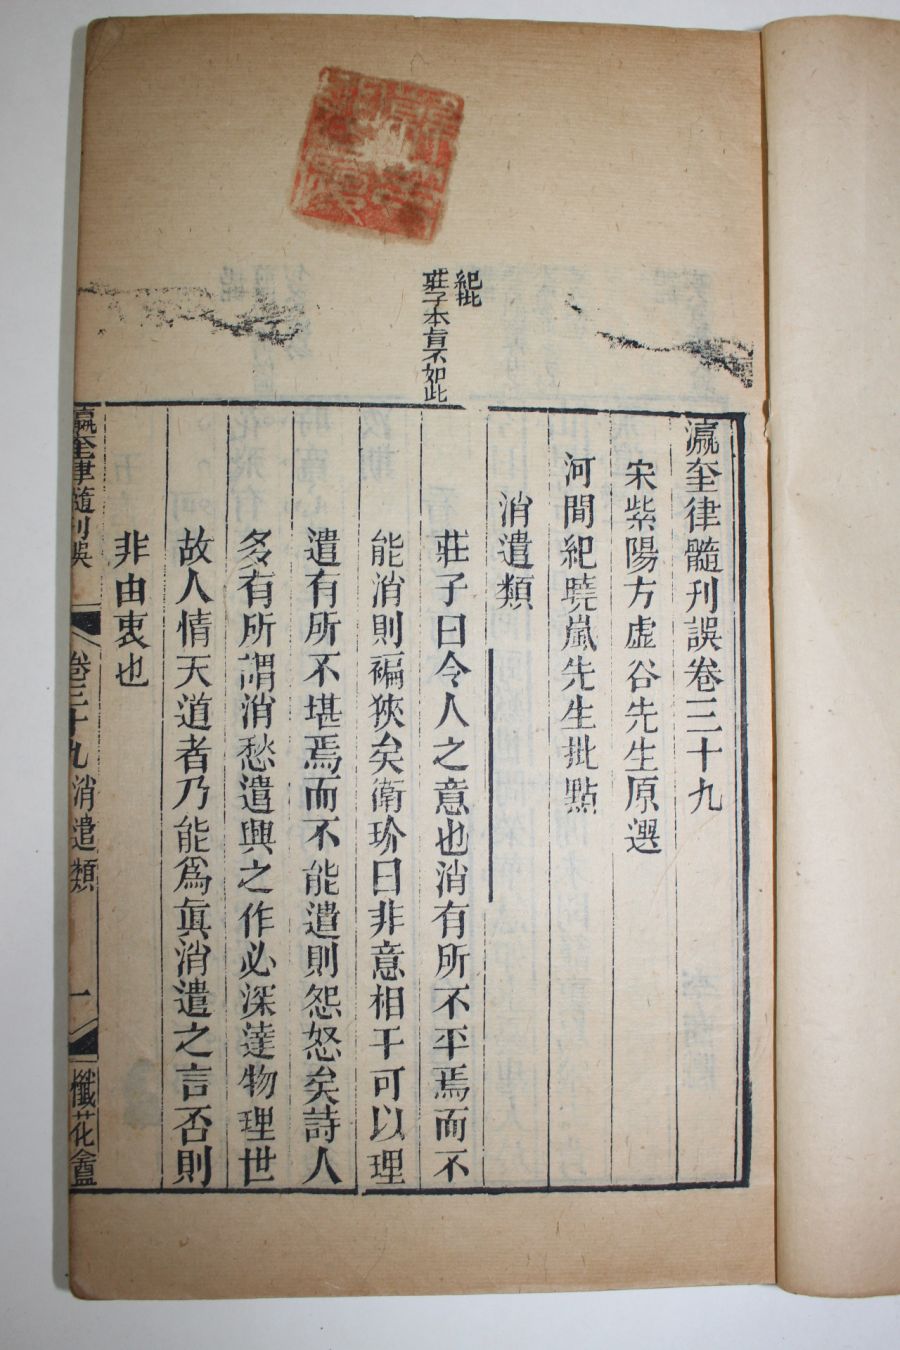 紀批
莊子本旨不如此
瀛奎律髓刊誤卷三十九
宋紫陽方虛谷先生原選
河間紀曉嵐先生批點
消遣類
莊子曰令人之意也消有所不平焉而不
能消則褊狹矣衛玠曰非意相干可以理
遣有所不堪焉而不能遣則怨怒矣詩人
多有所謂消愁遣興之作必深達物理世
故人情天道者乃能爲眞消遣之言否則
非由衷也
瀛奎律髓刊誤
卷三十九 消遣類
一
懺花盦